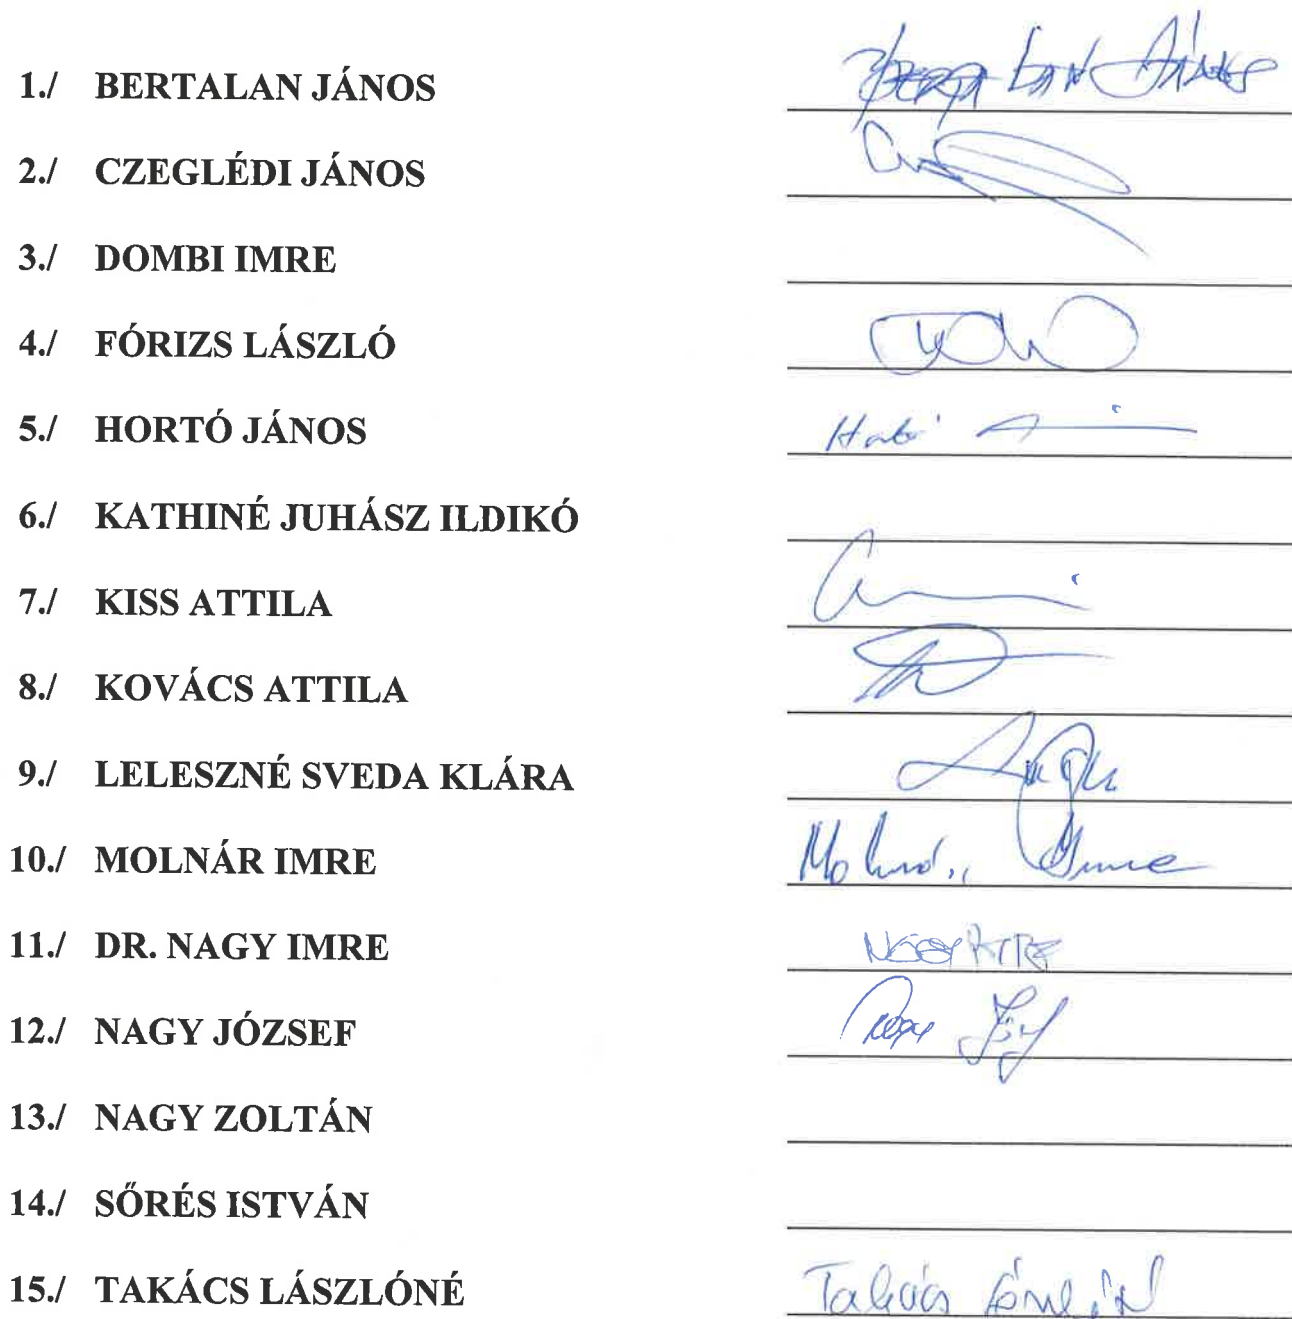 1./ BERTALAN JÁNOS
2./ CZEGLÉDI JÁNOS
3./ DOMBI IMRE
4./ FÓRIZS LÁSZLÓ
5./ HORTÓ JÁNOS Hortó
6./ KATHINÉ JUHÁSZ ILDIKÓ
7./ KISS ATTILA
8./ KOVÁCS ATTILA
9./ LELESZNÉ SVEDA KLÁRA
10./ MOLNÁR IMRE Molnár Imre
11./ DR. NAGY IMRE
12./ NAGY JÓZSEF Nagy
13./ NAGY ZOLTÁN
14./ SŐRÉS ISTVÁN
15./ TAKÁCS LÁSZLÓNÉ Takács